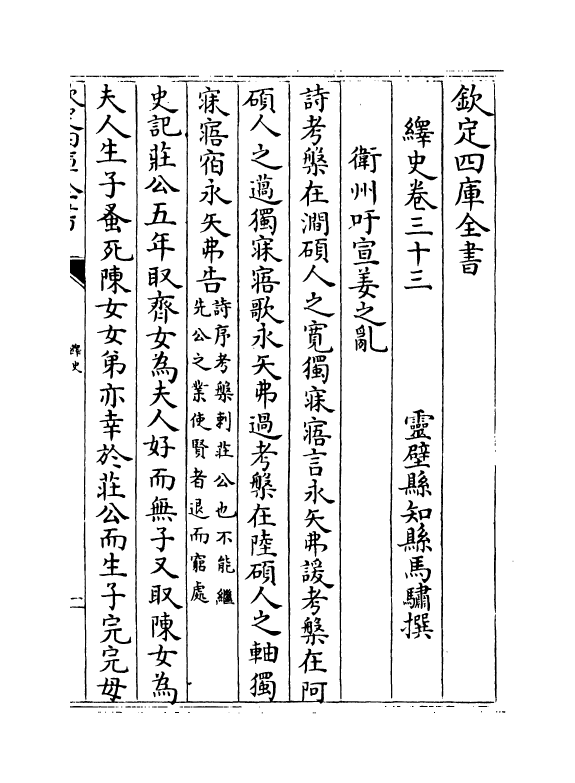 欽定四庫全書
繹史卷三十三　靈壁縣知縣馬驌撰
衛州吁宣姜之亂
詩考槃在澗碩人之寛獨寐寤言永矢弗諼考槃在阿
碩人之薖獨寐寤歌永矢弗過考槃在陸碩人之軸獨
寐寤宿永矢弗告詩序考槃刺莊公也不能繼
先公之業使賢者退而窮處
史記莊公五年取齊女為夫人好而無子又取陳女為
夫人生子蚤死陳女女弟亦幸於莊公而生子完完母
繹史